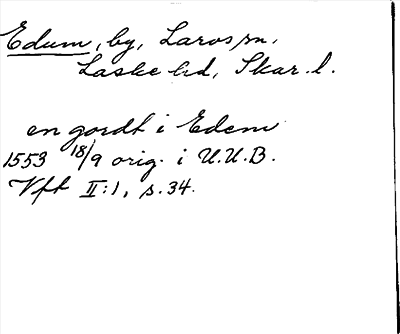 Edum, by, Larvs sn,
Laske hd, Skar. l.
en gordt i Edem
1553 18/9 orig. i U.U.B.
Vft II:1, s. 34.